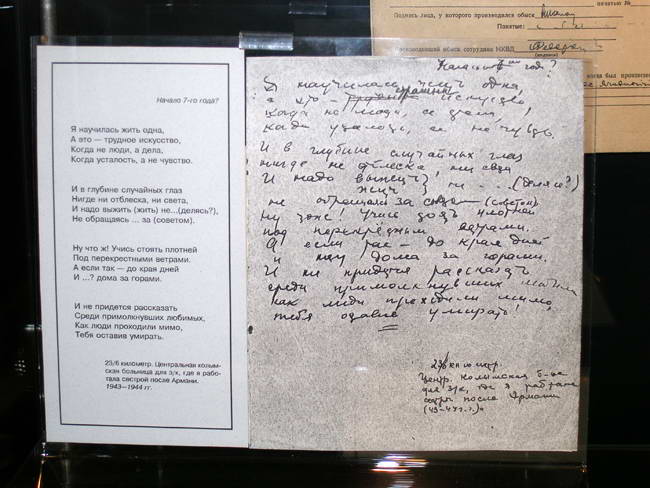 Начало 7-го года?
Я научилась жить одна,
А это — трудное искусство,
Когда не люди, а дела,
Когда усталость, а не чувство.
И в глубине случайных глаз
Нигде ни отблеска, ни света,
И надо выжить (жить) не...(делясь?),
Не обращаясь ... за (советом).
Ну что ж! Учись стоять плотней
Под перекрестными ветрами.
А если так — до края дней
И ...? дома за горами.
И не придется рассказать
Среди примолкнувших любимых,
Как люди проходили мимо,
Тебя оставив умирать.
23/6 километр. Центральная колым-
ская больница для з/к, где я рабо-
тала сестрой после Армани.
1943–1944 гг.
Начало 7-го года?
Я научилась жить одна,
а это — трудное искусство,
когда не люди, а дела,
когда усталость, а не чувство.
И в глубине случайных глаз
нигде не отблеска, ни света
И надо выжить не ... (делясь?)
жить
не обращаясь за (советом)
Ну что ж! Учись стоять плотней
под перекрестными ветрами.
А если так — до края дней
и дома за горами.
И не придется рассказать
среди примолкнувших
как люди проходили мимо,
тебя оставив умирать!
23/6 километр.
Центр. Колымская б-ца
для з/к, где я работала
сестр. после Армани
(43–44 г.г.)
печатью №
Подпись лица, у которого производился обыск
Понятые:
Производивший обыск сотрудник МКВД
(подпись)
когда был произведен